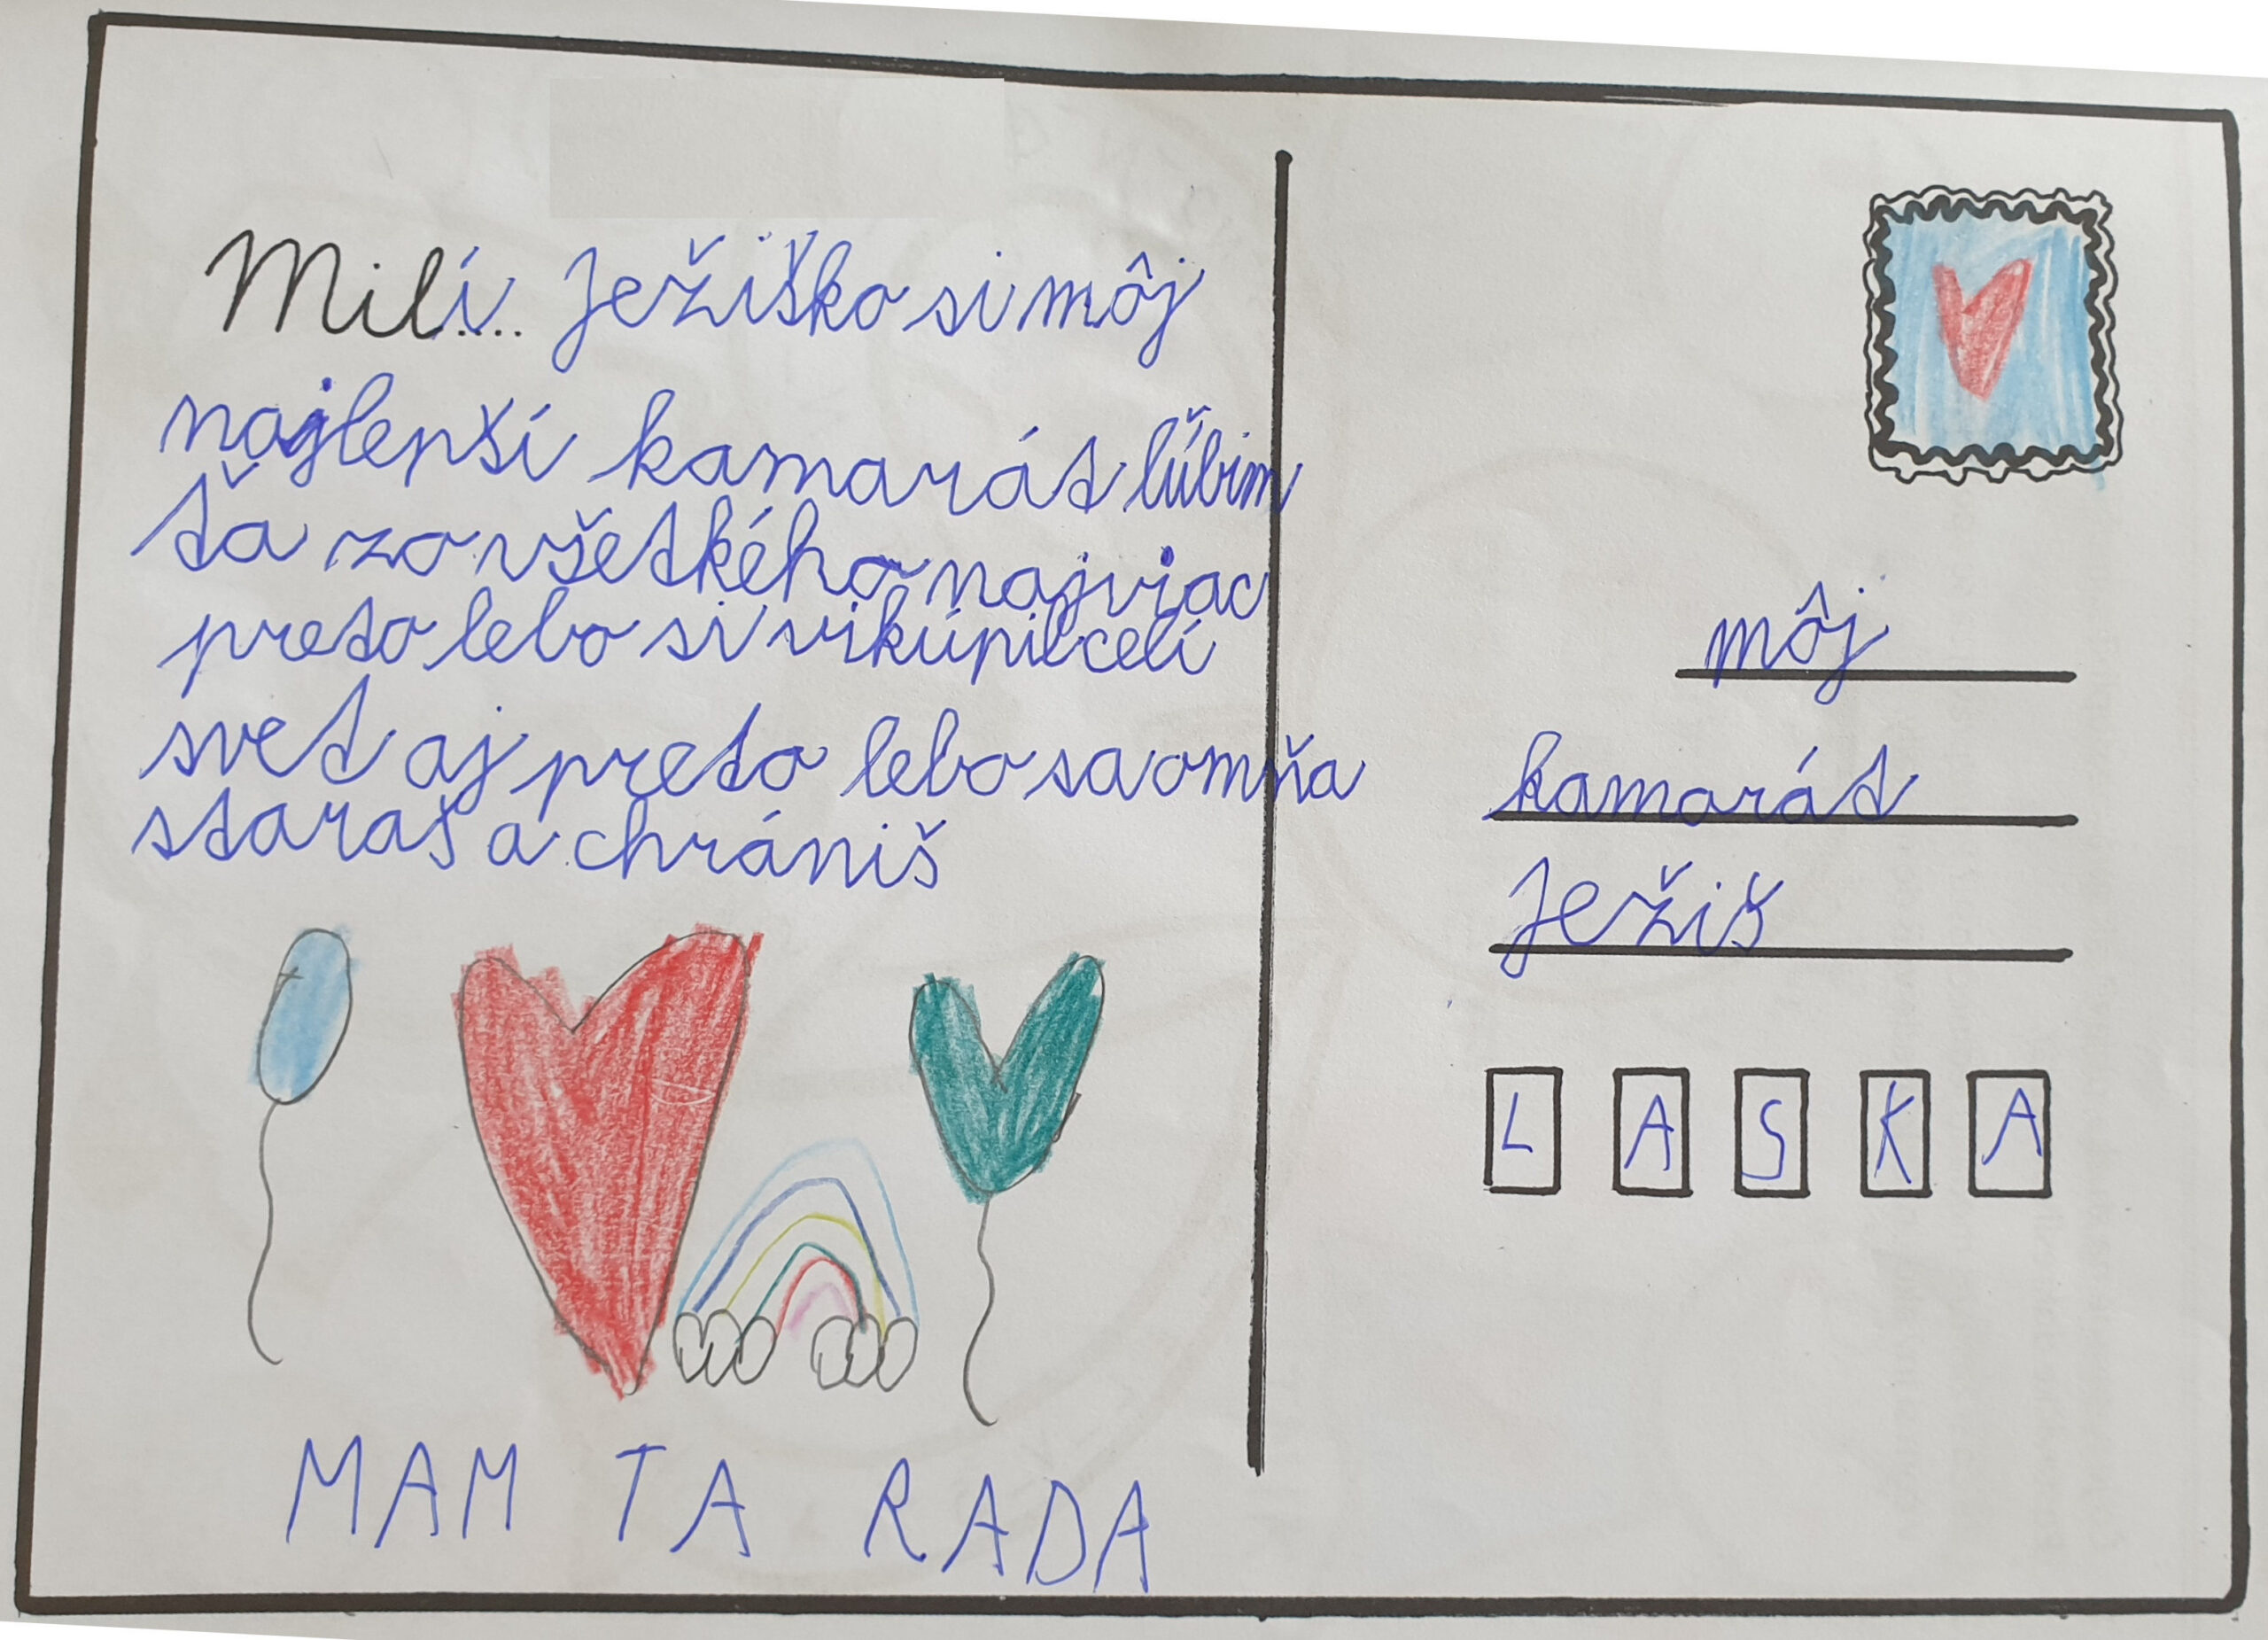 Milí.... Ježiško si môj
najlepší kamarát lúbim
ťa zo všetkého najviac
preto lebo si vikúpil celí
svet aj preto lebo sa o mňa
staraš a chrániš
MAM TA RADA
môj
kamarát
Ježiš
L A S K A